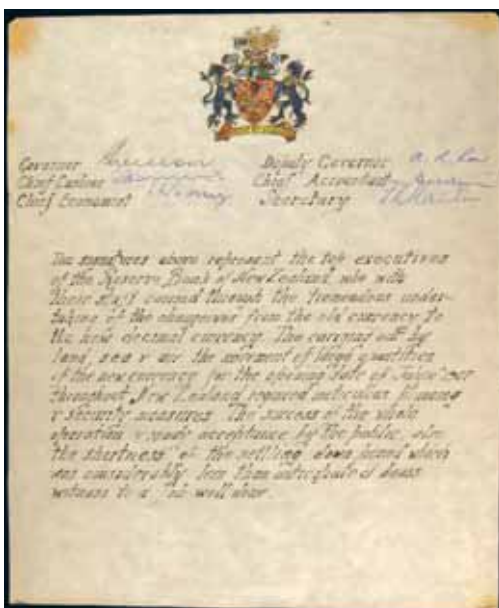 Governor Deputy Governor
Chief Cashier Chief Accountant
Chief Economist Secretary
The signatures above represent the top executives
of the Reserve Bank of New Zealand who with
their staff carried through the tremendous under-
taking of the changeover from the old currency to
the new decimal currency. The carriage by
land, sea & air the movement of large quantities
of the new currency for the opening date of
throughout New Zealand required meticulous planning
& security measures. The success of the whole
operation & ready acceptance by the public, also
the shortness of the settling down period which
was considerably less than anticipated bears
witness to a job well done.